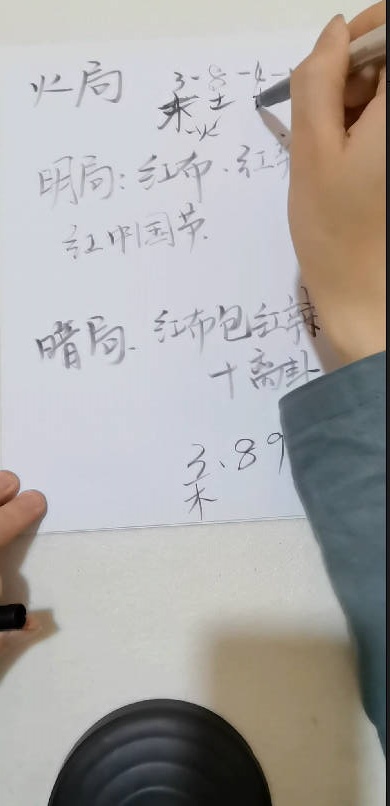 火局 3-8-4-
木 土
火
明局:红布.红
红中国节.
暗局.红布包红辣
+离卦
3、89
木